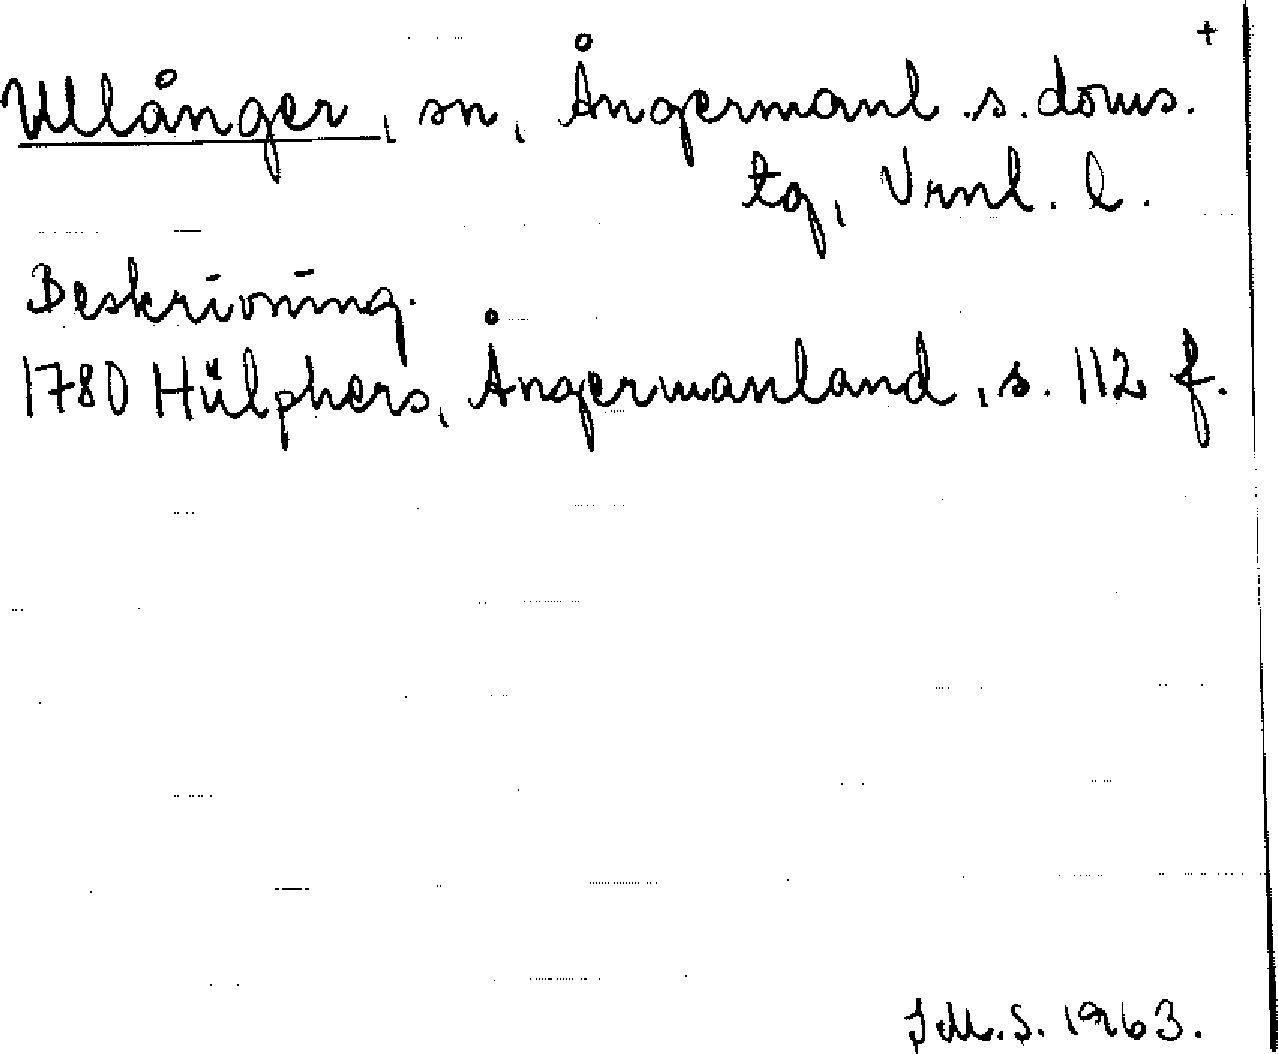 +
Ullånger, sn, Ångermanl. s. doms.
tg, Vrnl. l.
Beskrivning.
1780 Hülphers, Ångermanland, s. 112 f.
J.M.S. 1963.